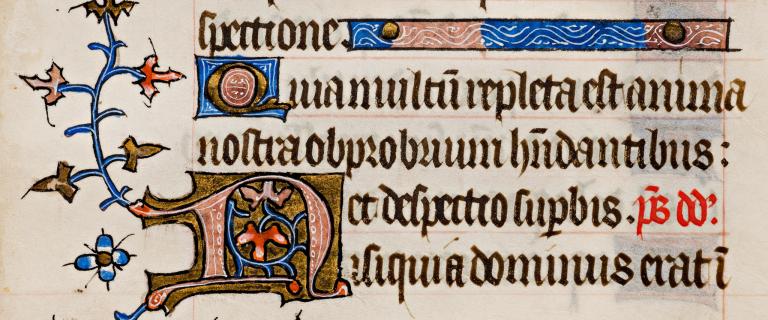 spectione.
Quia multū repleta est anima
nostra obprobrium hn̄dantibus :
et despectio sup̱bis . p̄s dd̄.
Nisi quia dominus erat ī